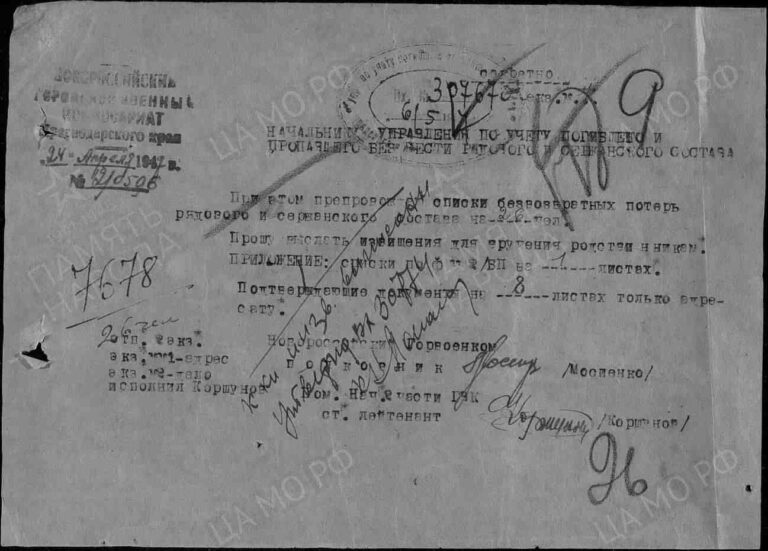 НОВОРОССИЙСКИЙ
ГОРОДСКОЙ ВОЕННЫЙ
КОМИССАРИАТ
Краснодарского края
"24" Апреля 194 г.
№
307678
6/5
9
НАЧАЛЬНИКУ УПРАВЛЕНИЯ ПО УЧЕТУ ПОГИБШЕГО И
ПРОПАВШЕГО БЕЗ ВЕСТИ РЯДОВОГО И СЕРЖАНСКОГО СОСТАВА
При этом препровож списки безвозвратных потерь
рядового и сержанского состава на -26- чел.
Прошу выслать извищения для вручения родственникам.
ПРИЛОЖЕНИЕ: списки по ф №2/БП на ---1---листах.
Подтверждающие документы на --8---листах только адре-
сату.
7678
26 чел
отп. 2 экз.
экз. №1-адрес
экз. №2-дело
исполнил Коршунов
Новороссийский Горвоенком
полковник /Мосиенко/
Пом. Нач. 2 части ГВК
ст. лейтенант /Коршунов/
26
ПАМЯТЬ
ЦА МО.РФ
ЦА МО.РФ
ЦА МО.РФ
ЦА МО.РФ